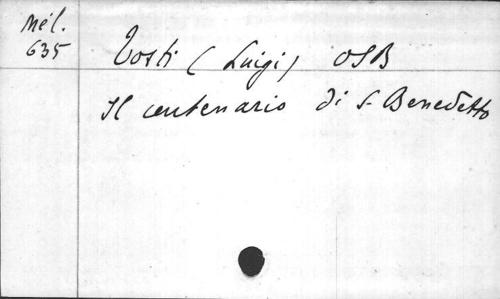 Mél.
635
Tosti (Luigi) OSB
Il centenario di S. Benedetto